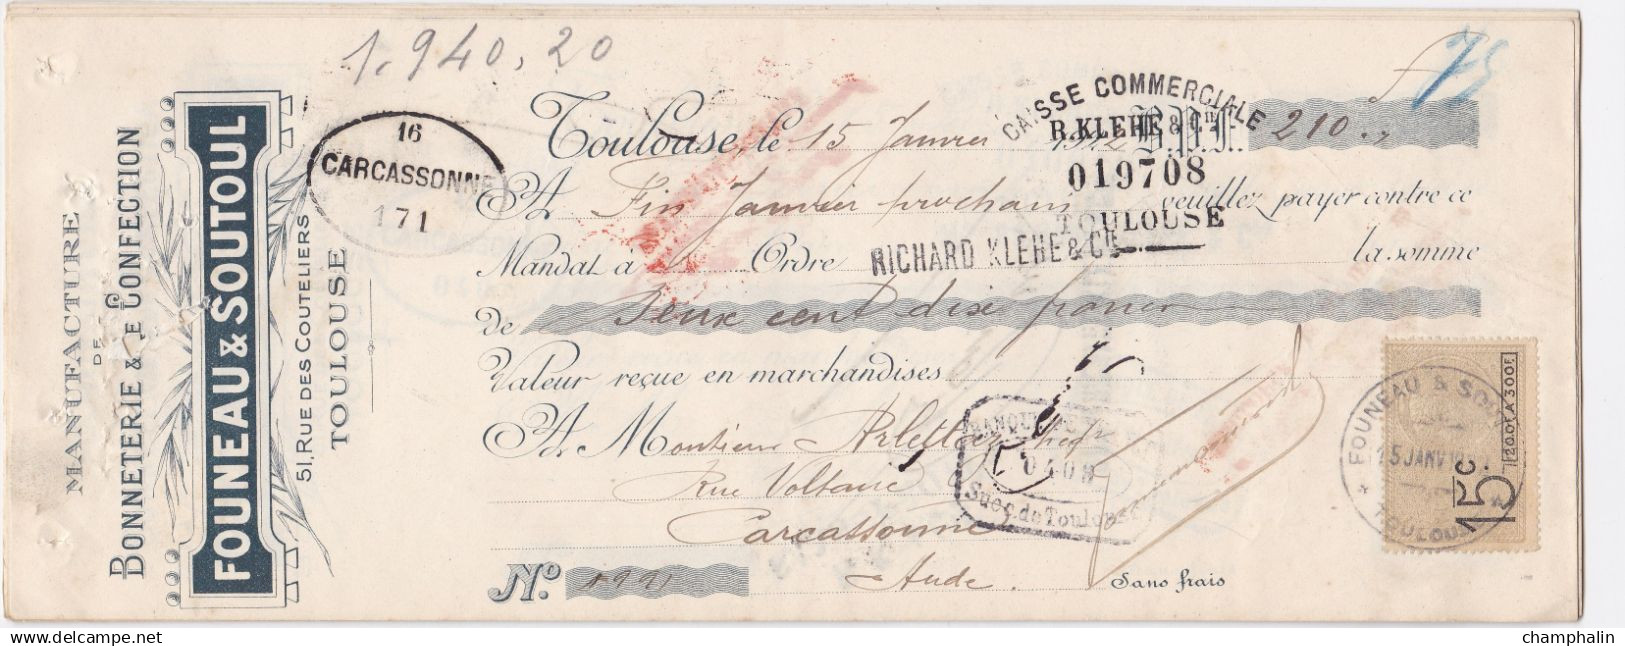 1,940,20
75
MANUFACTURE
DE
BONNETERIE & DE CONFECTION
FOUNEAU & SOUTOUL
51, RUE DES COUTELIERS
TOULOUSE
16
CARCASSONNE
171
Toulouse, le 15 Janvier 1922 B.P.F. 210.,
CAISSE COMMERCIALE
R. KLEHE & Cie
019708
TOULOUSE
A Fin Janvier prochain veuillez payer contre ce
Mandat à Ordre RICHARD KLEHE & Cie la somme
de Deux cent dix francs
Valeur reçue en marchandises
A Monsieur
Rue Voltaire
Carcassonne
Aude
No. Sans frais
BANQUE
0408
Succ. de Toulouse
FOUNEAU & SOUTOUL
15 JANV
* TOULOUSE *
15c.
200F À 300F.
delcampe.net
champhalin